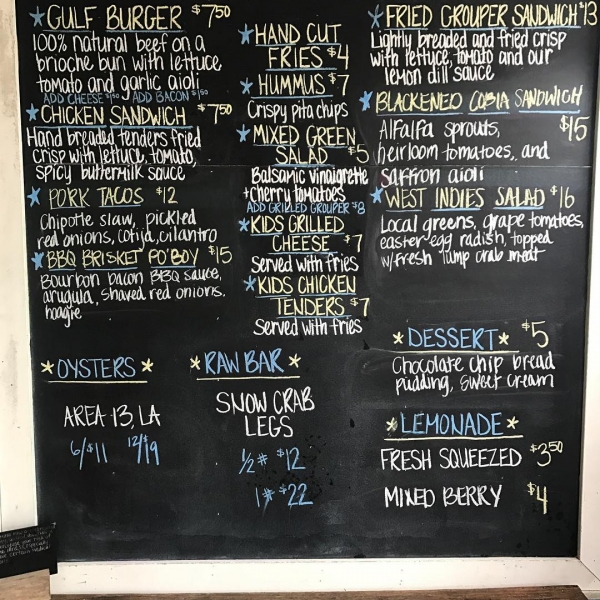 GULF BURGER $7⁵⁰
100% natural beef on a
brioche bun with lettuce
tomato and garlic aioli
ADD CHEESE $1⁵⁰ ADD BACON $1⁵⁰
CHICKEN SANDWICH $7⁵⁰
Hand breaded tenders fried
crisp with lettuce, tomato,
spicy buttermilk sauce
PORK TACOS $12
Chipotle slaw, pickled
red onions, cotija, cilantro
BBQ BRISKET PO'BOY $15
Bourbon bacon BBQ sauce,
arugula, shaved red onions,
hoagie
HAND CUT
FRIES $4
HUMMUS $7
Crispy pita chips
MIXED GREEN
SALAD $5
Balsamic vinaigrette
+ cherry tomatoes
ADD GRILLED GROUPER $8
KIDS GRILLED
CHEESE $7
Served with fries
KIDS CHICKEN
TENDERS $7
Served with fries
FRIED GROUPER SANDWICH $13
Lightly breaded and fried crisp
with lettuce, tomato and our
lemon dill sauce
BLACKENED COBIA SANDWICH
$15
Alfalfa sprouts,
heirloom tomatoes, and
saffron aioli
WEST INDIES SALAD $16
Local greens, grape tomatoes,
easter egg radish, topped
w/ fresh lump crab meat
OYSTERS
AREA 13, LA
6/$11 12/$19
RAW BAR
SNOW CRAB
LEGS
1/2# $12
1# $22
DESSERT $5
Chocolate chip bread
pudding, sweet cream
LEMONADE
FRESH SQUEEZED $3⁵⁰
MIXED BERRY $4